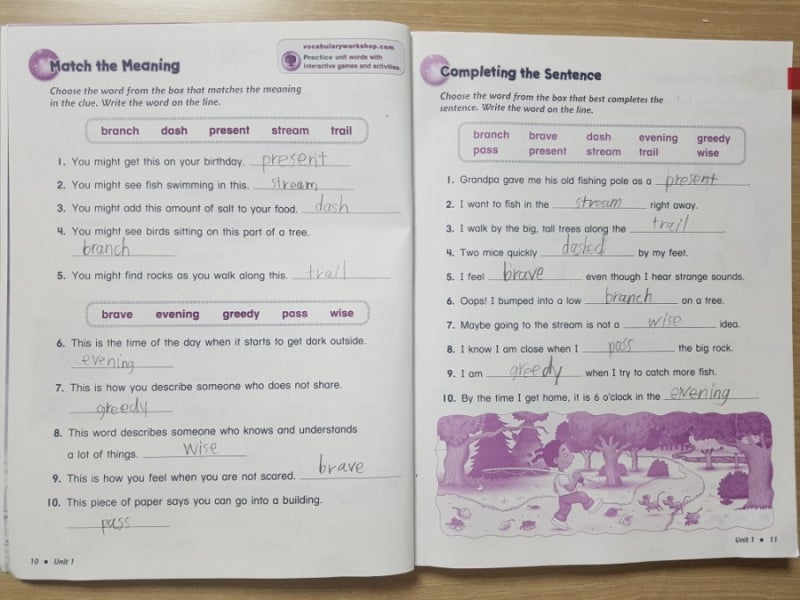 Match the Meaning
vocabularyworkshop.com
Practice unit words with
interactive games and activities.
Choose the word from the box that matches the meaning
in the clue. Write the word on the line.
branch dash present stream trail
1. You might get this on your birthday. present
2. You might see fish swimming in this. stream
3. You might add this amount of salt to your food. dash
4. You might see birds sitting on this part of a tree.
branch
5. You might find rocks as you walk along this. trail
brave evening greedy pass wise
6. This is the time of the day when it starts to get dark outside.
evening
7. This is how you describe someone who does not share.
greedy
8. This word describes someone who knows and understands
a lot of things. wise
9. This is how you feel when you are not scared. brave
10. This piece of paper says you can go into a building.
pass
10 ■ Unit 1
Completing the Sentence
Choose the word from the box that best completes the
sentence. Write the word on the line.
branch brave dash evening greedy
pass present stream trail wise
1. Grandpa gave me his old fishing pole as a present.
2. I want to fish in the stream right away.
3. I walk by the big, tall trees along the trail.
4. Two mice quickly dashed by my feet.
5. I feel broove even though I hear strange sounds.
6. Oops! I bumped into a low branch on a tree.
7. Maybe going to the stream is not a wise idea.
8. I know I am close when I pass the big rock.
9. I am greedy when I try to catch more fish.
10. By the time I get home, it is 6 o'clock in the evening.
Unit 1 ■ 11